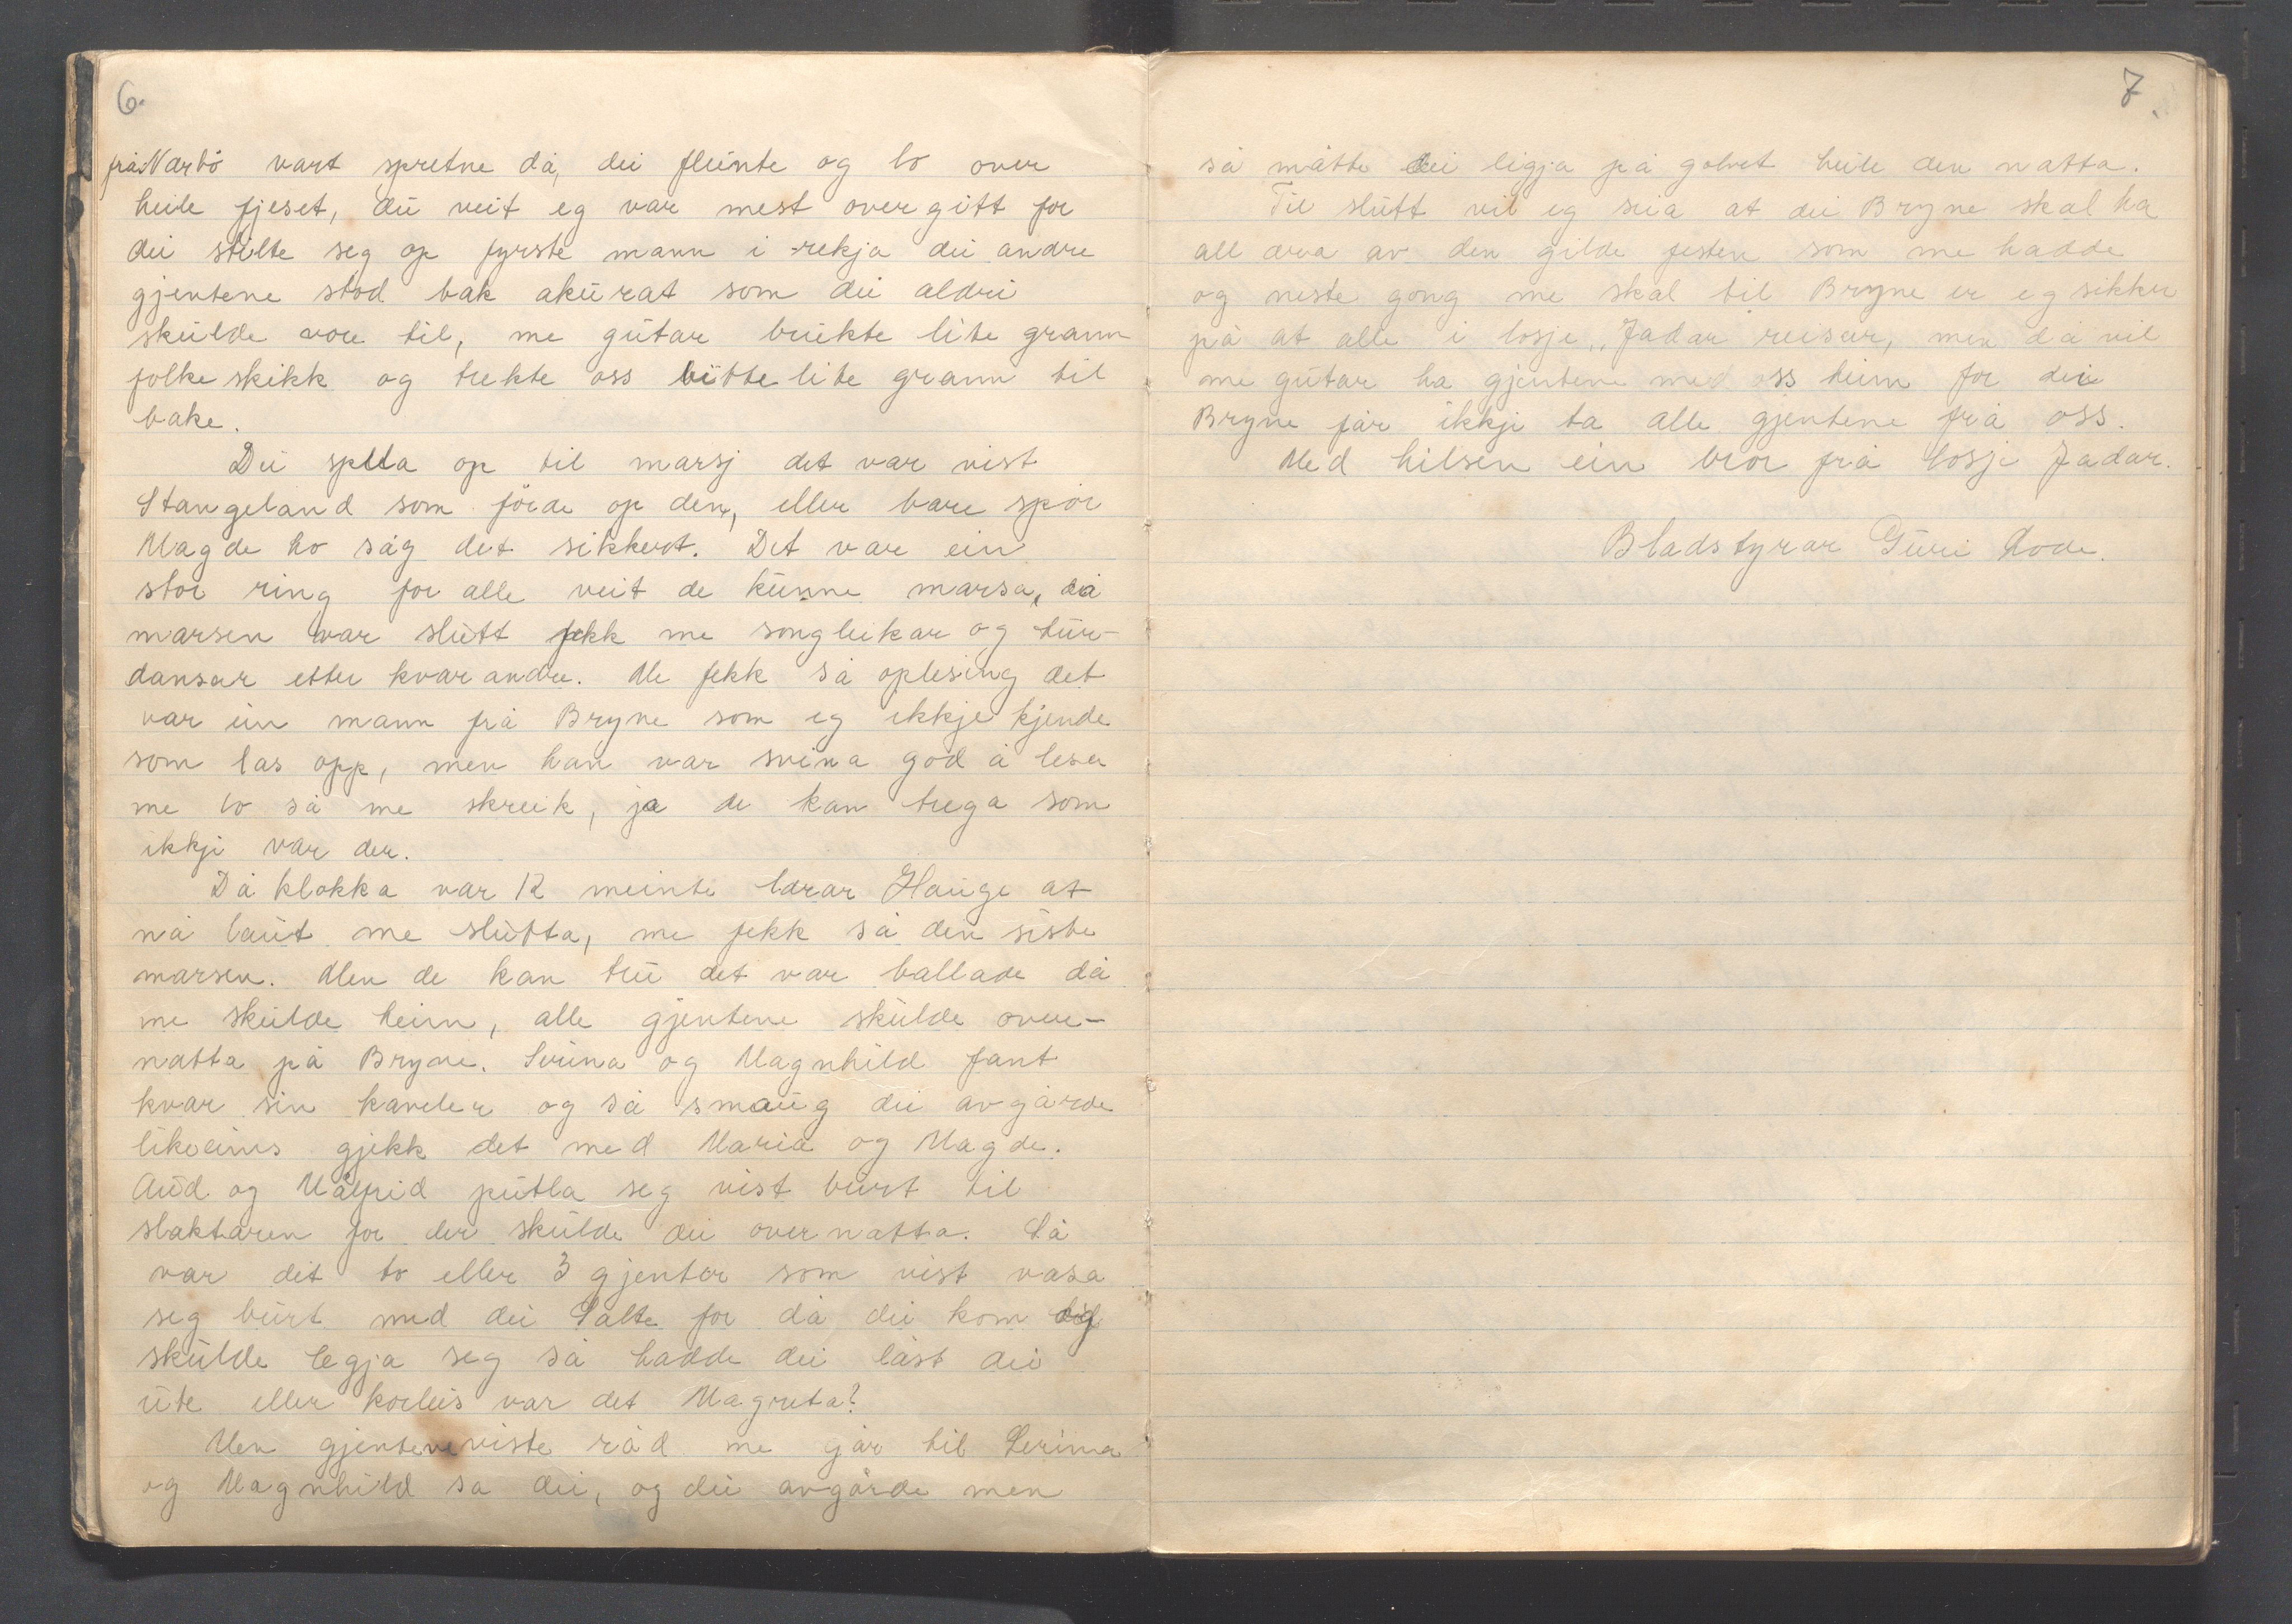 6.
frå Nærbö vart spretne då, dei flünte og lo over
heile fjeset, dü veit eg var mest overgitt for
dei stilte seg op fyrste mann i rekja dei andre
gjentene stod bak aküraт som dei aldri
skülde vore til, me gütar brükte lite grann
folkeskikk og trekte oss bitte lite grann til
bake.
Dei spella op til marsj det var vist
Stangeland som förde op den, eller bare spör
Magde ho såg det sikkert. Det var ein
stor ring for alle veit de künne marsa, då
marsen var slütt fekk me songleikar og tür-
dansar etter kvarandre. Me fekk så oplesing det
var ein mann frå Bryne som eg ikkje kjende
som las opp, men han var svina god å lesa
me lo så me skreik, ja de kan trega som
ikkje var der.
Då klokka var 12 meinte lærar Haüge at
nå laüt me slütta, me fekk så den siste
marsen. Men de kan trü det var ballade då
me skülde heim, alle gjentene skülde over-
natta på Bryne. Serina og Magnhild fant
kvar sin kavaler og så smaüg dei avgårde
likoeins gjekk det med Maria og Magde.
Aüd og Målfrid pütla seg vist bürt til
slaktaren for der skülde dei overnatta. Så
var det to eller 3 gjentor som vist vasa
seg bürt med dei Salte for då dei kom og
skülde legja seg så hadde dei låst dei
üte eller korleis var det Magreta?
Men gjentene viste råd me går til Serina
og Magnhild sa dei, og dei avgårde men
7.
så måtte dei ligja på golvet heile den natta.
Til slütt vil eg seia at dei Bryne skal ha
all æra av den gilde festen som me hadde
og neste gong me skal til Bryne er eg sikker
på at alle i losje „Jadar reisar, men då vil
me gütar ha gjentene med oss heim for dei
Bryne får ikkje ta alle gjentene frå oss.
Med hilsen ein bror frå losje Jadar.
Bladstyrar Güri Lode.